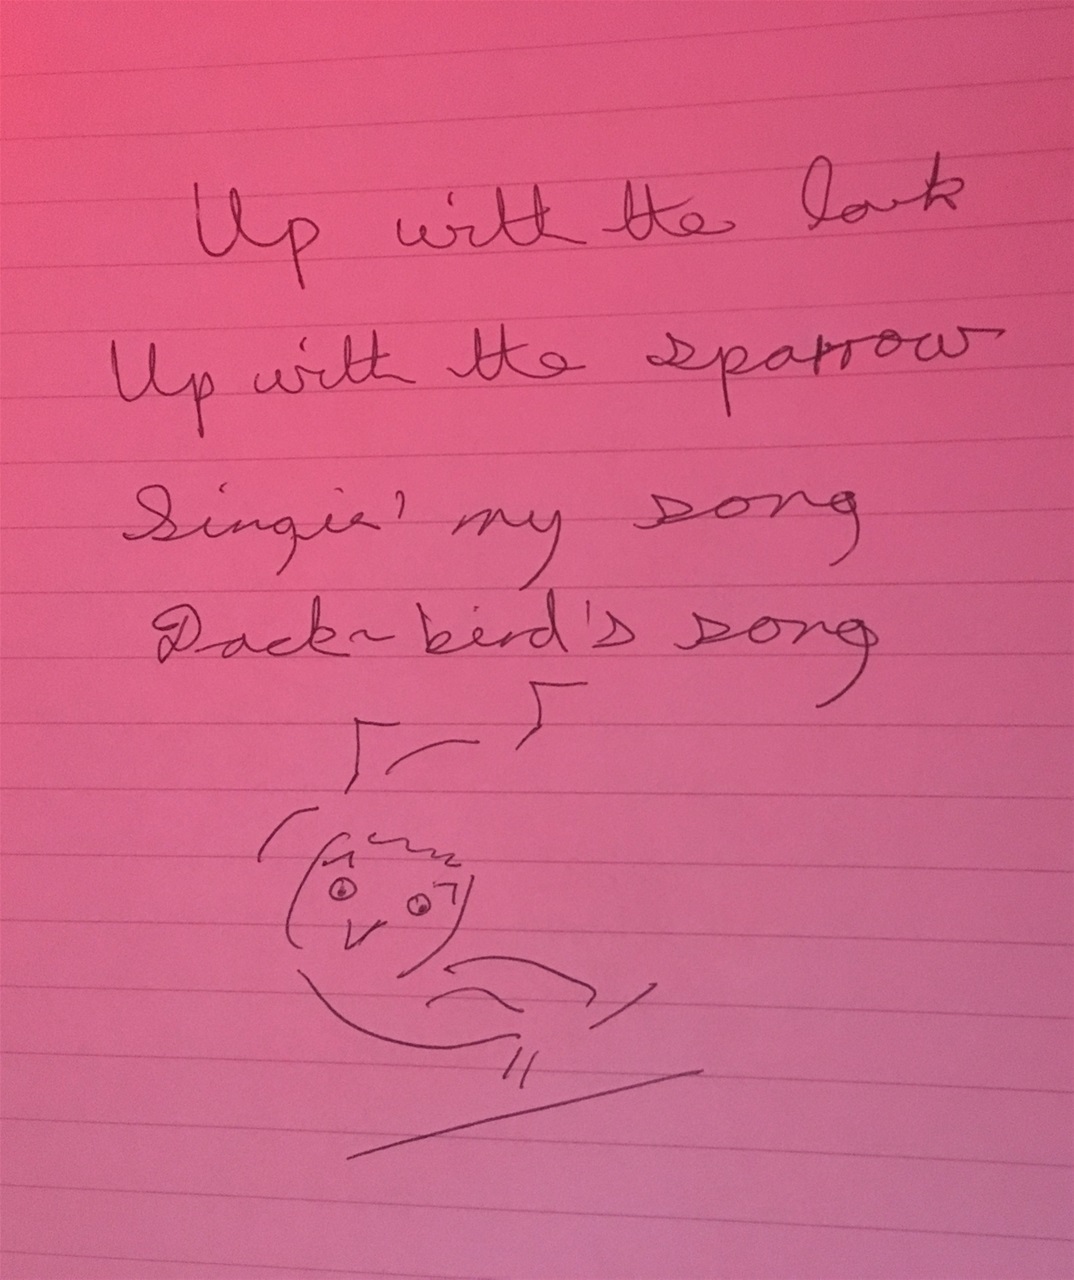 Up with the lark
Up with the sparrow
Singin' my song
Dack-bird's song